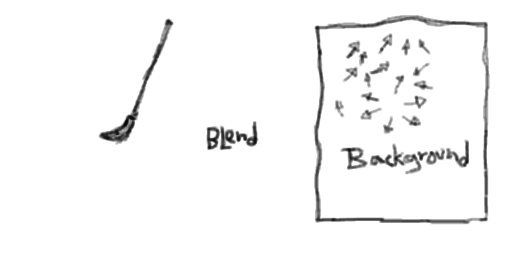 Blend
Background